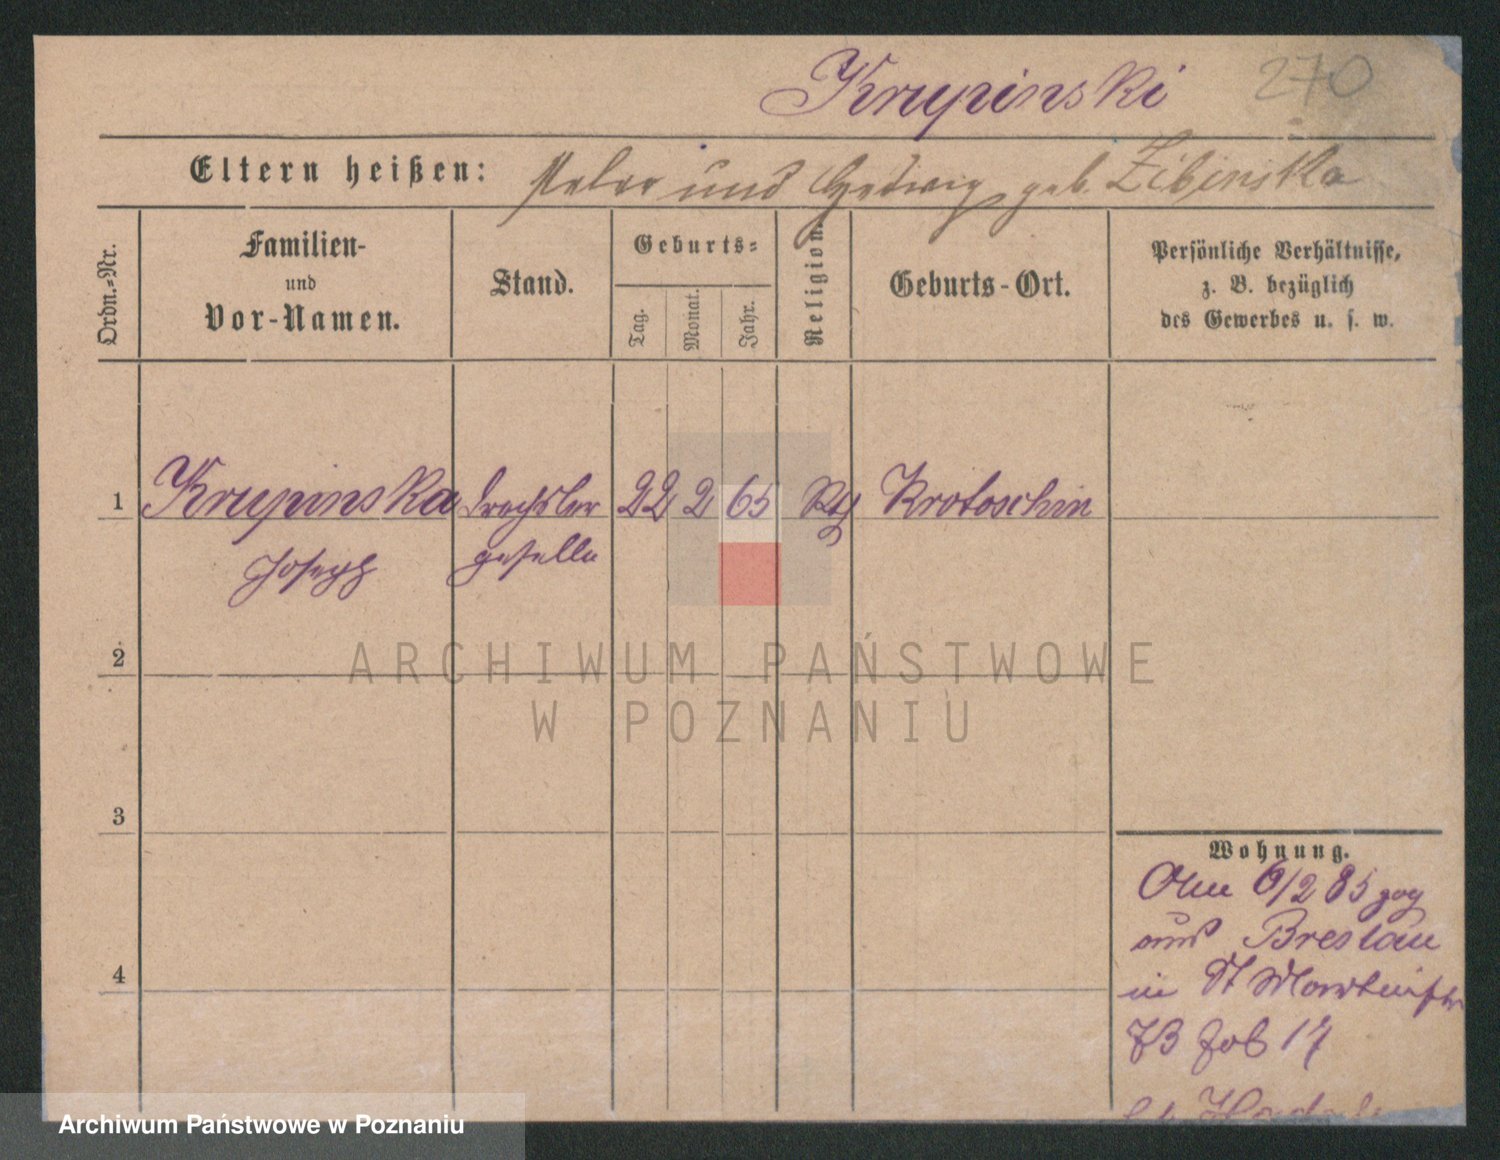 Krupinski 270
Eltern heißen: Peter und Hedwig geb. Zibinska
Ordn.-Nr.
Familien-
und
Vor-Namen.
Stand.
Geburts-
Tag.
Monat.
Jahr.
Religion.
Geburts-Ort.
Persönliche Verhältnisse,
z. B. bezüglich
des Gewerbes u. s. w.
1 Krupinska Drechsler 22 2 65 Kth Krotoschin
Joseph geselle
2
ARCHIWUM PAŃSTWOWE
W POZNANIU
3
4
Wohnung.
6/2 85 zog
Breslau
in St Martinstr
73
17
Archiwum Państwowe w Poznaniu